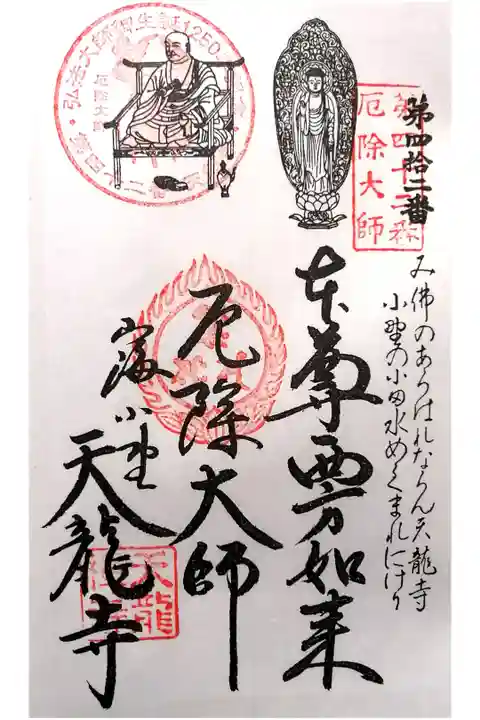 第四拾二番
第四十二番
厄除大師
み佛のあらはれならん天龍寺
小野の小田水めくまれにけり
本尊西方如来
厄除大師
小野
天龍寺
天龍
弘法大師御生誕1250年
厄除大師